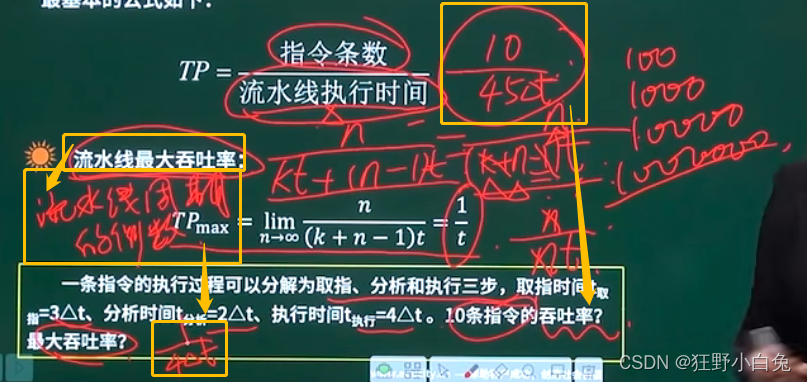 最基本的公式如下：
TP = 指令条数 / 流水线执行时间
10 / 45△t
100
1000
10000
1000000
n / kt+(n-1)t = n / (k+n-1)t
流水线最大吞吐率：
流水线周期的倒数
TPmax = lim n→∞ n / (k+n−1)t = 1 / t
n / nt
一条指令的执行过程可以分解为取指、分析和执行三步，取指时间t取
指=3△t、分析时间t分析=2△t、执行时间t执行=4△t。10条指令的吞吐率？
最大吞吐率？
4△t
CSDN @狂野小白兔